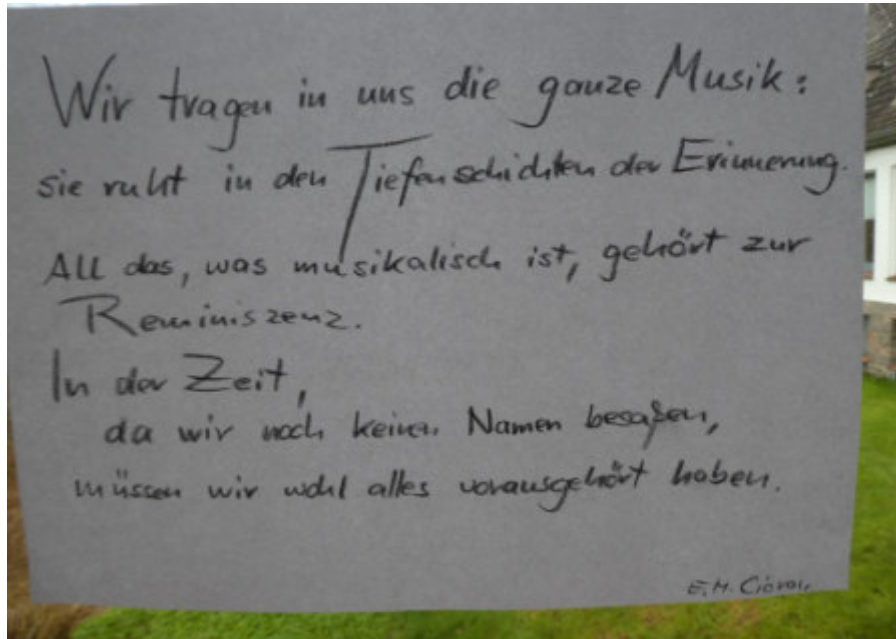 Wir tragen in uns die ganze Musik:
sie ruht in den Tiefenschichten der Erinnerung.
All das, was musikalisch ist, gehört zur
Reminiszenz.
In der Zeit,
da wir noch keinen Namen besaßen,
müssen wir wohl alles vorausgehört haben.
E.M. Cioran